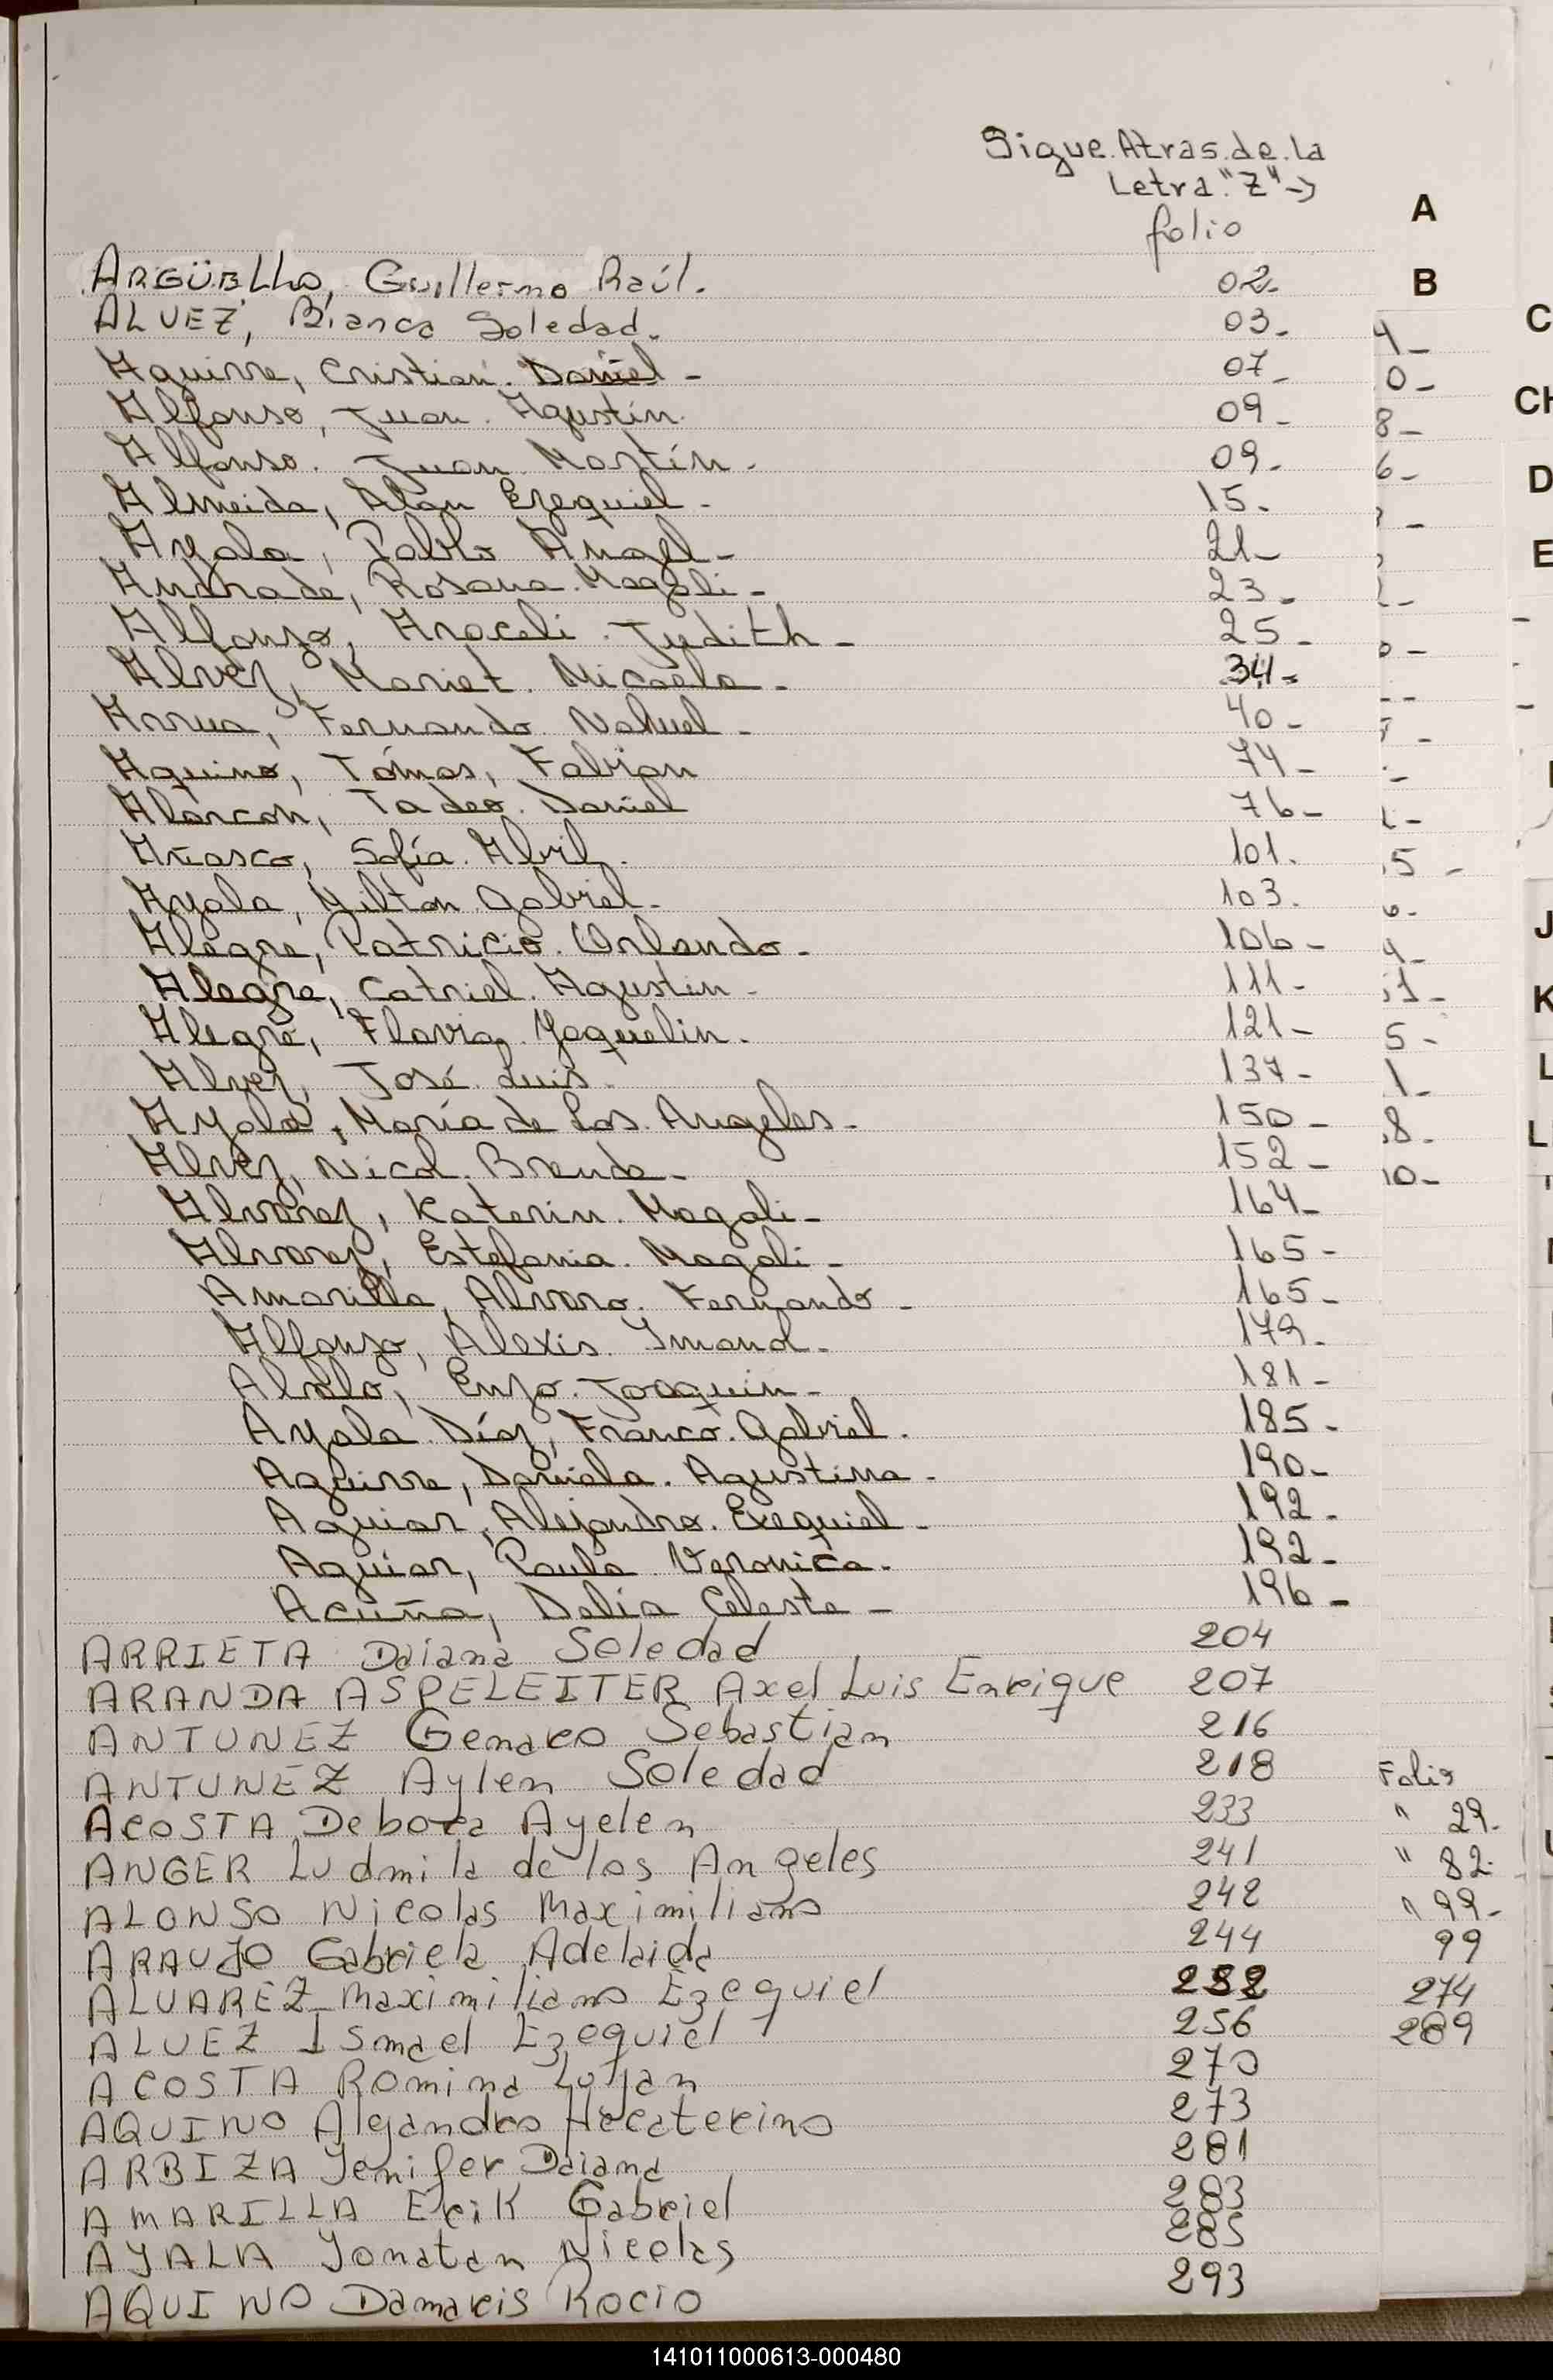 Sigue Atras de la
Letra "Z" →
folio
ARGÜELLO, Guillermo Raúl. 02-
ALVEZ, Bianca Soledad. 03-
Aguirre, Cristian Daniel - 07-
Alfonso, Juan Agustín. 09-
Alfonso. Juan Martín. 09-
Almeida, Alan Ezequiel - 15-
Ayala, Pablo Angel - 21-
Andrade, Rosana Magali - 23-
Alfonzo, Araceli Judith - 25-
Alvez, Mariet Micaela - 34-
Arrua, Fernando Nahuel - 40-
Aquino, Tómas, Fabian 74-
Alarcon, Tadeo Daniel 76-
Añasco, Sofía Abril. 101.
Ayala, Milton Gabriel- 103.
Alegre, Patricio Orlando- 106-
Alegre, Catriel Agustin - 111-
Alegre, Flavia Yaquelin. 121-
Alvez, José Luis. 137-
Ayala, María de Los Angeles- 150-
Alvez, Nicol Brenda - 152-
Alvarez, Katerin Magali- 164-
Alvarez, Estefania Magali - 165-
Amarilla, Alvaro Fernando - 165-
Alfonzo, Alexis 179-
Enzo Joaquin - 181-
Ayala Díaz, Franco Gabriel. 185-
Aguirre, Daniela Agustina - 190-
Aguiar, Alejandro Exequiel - 192-
Aguiar, Paula Veronica. 192-
Acuña, Delia Celeste - 196-
ARRIETA Daiana Soledad 204
ARANDA ASPELEITER Axel Luis Enrique 207
ANTUNEZ Genaro Sebastian 216
ANTUNEZ Aylen Soledad 218
ACOSTA Debora Ayelen 233
ANGER Ludmila de los Angeles 241
ALONSO Nicolas Maximiliano 242
ARAUJO Gabriela Adelaida 244
ALVAREZ Maximiliano Ezequiel
ALVEZ Ismael Ezequiel 256
ACOSTA Romina Lujan 270
AQUINO 273
ARBIZA Yenifer Daiana 281
AMARILLA Erik Gabriel 283
AYALA Yonatan Nicolas 285
AQUINO Damaris Rocio 293
Folio
" 29-
" 82-
" 99-
99
274
289
A
B
C
CH
D
E
J
K
L
141011000613-000480